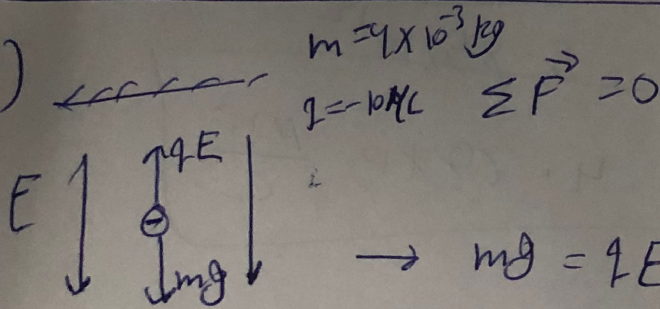 )
m = 4 × 10⁻³ kg
q = -10 μC Σ F⃗ = 0
E qE
mg → mg = qE